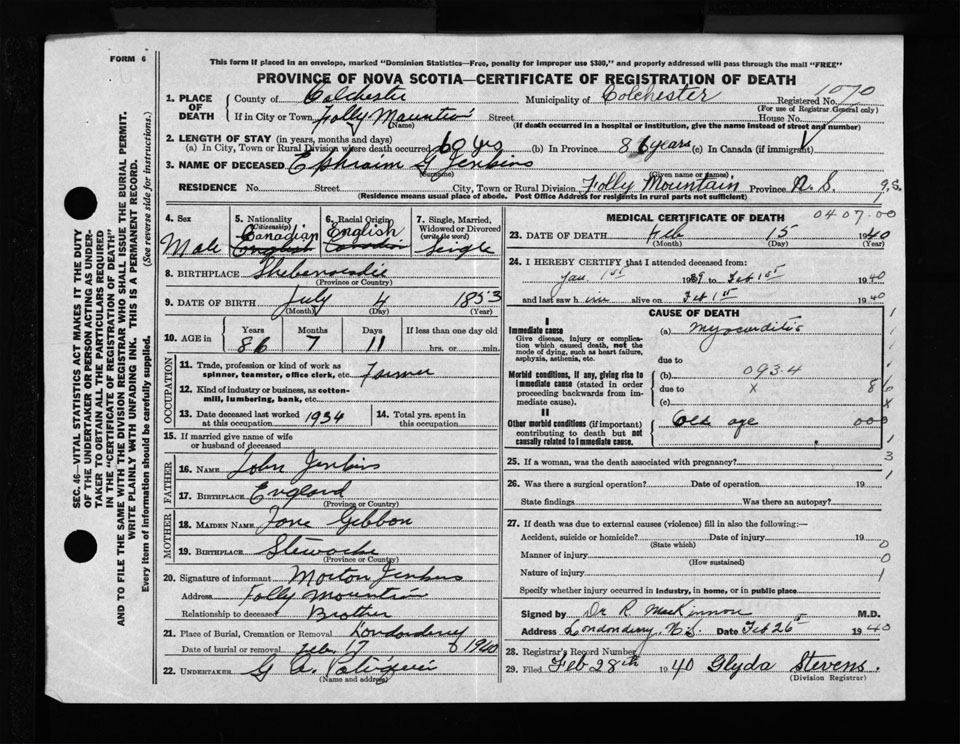 FORM 6
This form if placed in an envelope, marked "Dominion Statistics—Free, penalty for improper use $300," and properly addressed will pass through the mail "FREE"
PROVINCE OF NOVA SCOTIA—CERTIFICATE OF REGISTRATION OF DEATH
1070
1. PLACE OF DEATH County of Colchester Municipality of Colchester Registered No.
(For use of Registrar General only)
If in City or Town Folly Mountain Street House No.
(Name) (If death occurred in a hospital or institution, give the name instead of street and number)
2. LENGTH OF STAY (in years, months and days)
(a) In City, Town or Rural Division where death occurred 60 yrs (b) In Province 86 years (c) In Canada (if immigrant)
3. NAME OF DECEASED Ephraim G Jenkins
(Surname) (Given name or names)
RESIDENCE No. Street City, Town or Rural Division Folly Mountain Province N.S. 9.S.
(Residence means usual place of abode. Post Office Address for residents in rural parts not sufficient)
SEC. 46—VITAL STATISTICS ACT MAKES IT THE DUTY
OF THE UNDERTAKER OR PERSON ACTING AS UNDER-
TAKER TO OBTAIN ALL THE PARTICULARS REQUIRED
IN THE "CERTIFICATE OF REGISTRATION OF DEATH"
AND TO FILE THE SAME WITH THE DIVISION REGISTRAR WHO SHALL ISSUE THE BURIAL PERMIT.
WRITE PLAINLY WITH UNFADING INK. THIS IS A PERMANENT RECORD.
Every item of information should be carefully supplied. (See reverse side for instructions.)
4. Sex
Male
5. Nationality (Citizenship)
Canadian
English
6. Racial Origin
English
Canadian
7. Single, Married, Widowed or Divorced (write the word)
Single
8. BIRTHPLACE
(Province or Country)
9. DATE OF BIRTH July 4 1853
(Month) (Day) (Year)
10. AGE in Years Months Days If less than one day old
86 7 11 hrs. or min.
OCCUPATION
11. Trade, profession or kind of work as spinner, teamster, office clerk, etc. Farmer
12. Kind of industry or business, as cotton-mill, lumbering, bank, etc.
13. Date deceased last worked at this occupation 1934
14. Total yrs. spent in this occupation
15. If married give name of wife or husband of deceased
FATHER
16. NAME John Jenkins
17. BIRTHPLACE England
(Province or Country)
MOTHER
18. MAIDEN NAME Jane Gibbon
19. BIRTHPLACE Stewiacke
(Province or Country)
20. Signature of informant Morton Jenkins
Address Folly Mountain
Relationship to deceased Brother
21. Place of Burial, Cremation or Removal Londonderry
Date of burial or removal Feb. 17 1940
22. UNDERTAKER G A
(Name and address)
MEDICAL CERTIFICATE OF DEATH
0407.00
23. DATE OF DEATH Feb 15 1940
(Month) (Day) (Year)
24. I HEREBY CERTIFY that I attended deceased from:
Jan 1st 1939 to Feb 1st 1940
and last saw him alive on Feb 1st 1940
CAUSE OF DEATH
I
Immediate cause
Give disease, injury or complication which caused death, not the mode of dying, such as heart failure, asphyxia, asthenia, etc.
(a) Myocarditis
due to
Morbid conditions, if any, giving rise to immediate cause (stated in order proceeding backwards from immediate cause).
(b) 093.4
due to x 86
(c) x
II
Other morbid conditions (if important) contributing to death but not causally related to immediate cause.
Old age 000
1
1
1
1
3
1
25. If a woman, was the death associated with pregnancy?
26. Was there a surgical operation? Date of operation 19
State findings Was there an autopsy?
27. If death was due to external causes (violence) fill in also the following:—
Accident, suicide or homicide? Date of injury 19
(State which)
0
Manner of injury 0
(How sustained)
Nature of injury 1
Specify whether injury occurred in industry, in home, or in public place
Signed by Dr R. MacKinnon M.D.
Address Londonderry, N.S. Date Feb 26th 1940
28. Registrar's Record Number
29. Filed Feb 28th 1940 Glyda Stevens.
(Division Registrar)